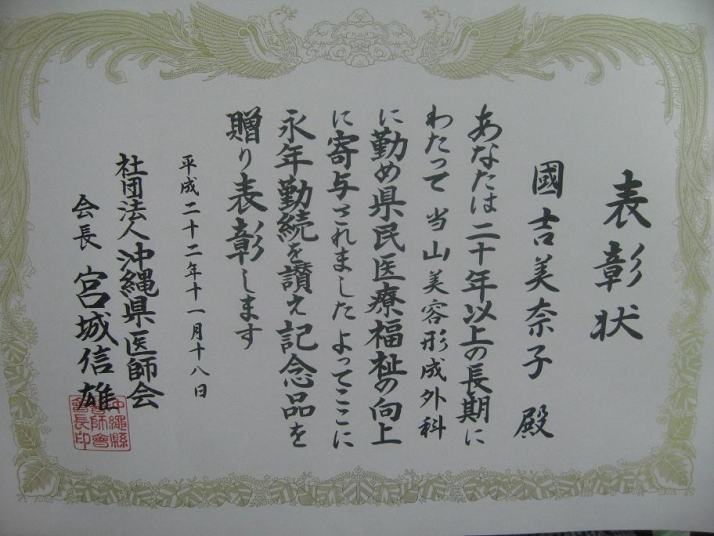 表彰状
國吉美奈子 殿
あなたは二十年以上の長期に
わたって 当山美容形成外科
に勤め県民医療福祉の向上
に寄与されました よってここに
永年勤続を讃え記念品を
贈り表彰します
平成二十二年十一月十八日
社団法人沖縄県医師会
会長 宮城信雄
沖縄縣
醫師會
會長印